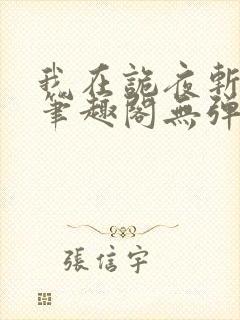 我在詭夜斬
筆趣閣無彈
張信宇